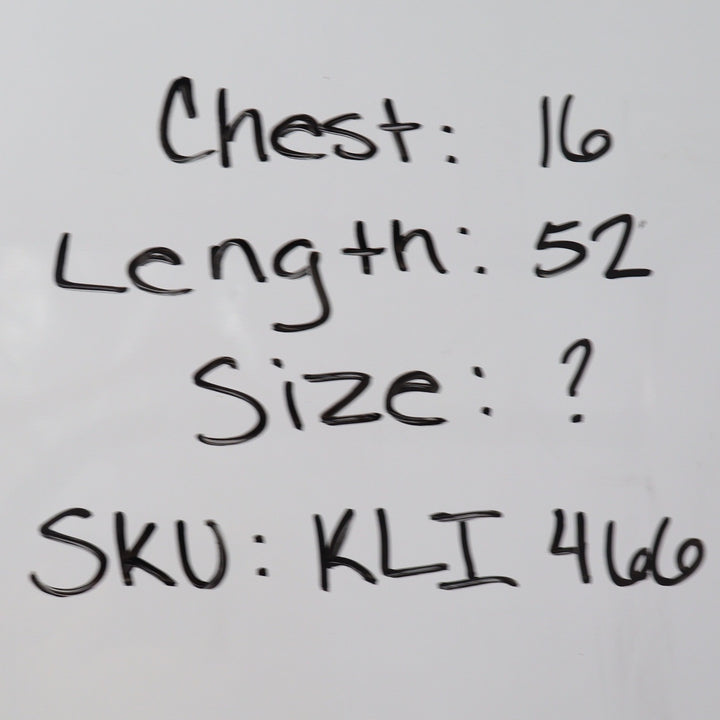 Chest: 16
Length: 52
Size: ?
SKU: KLI 466